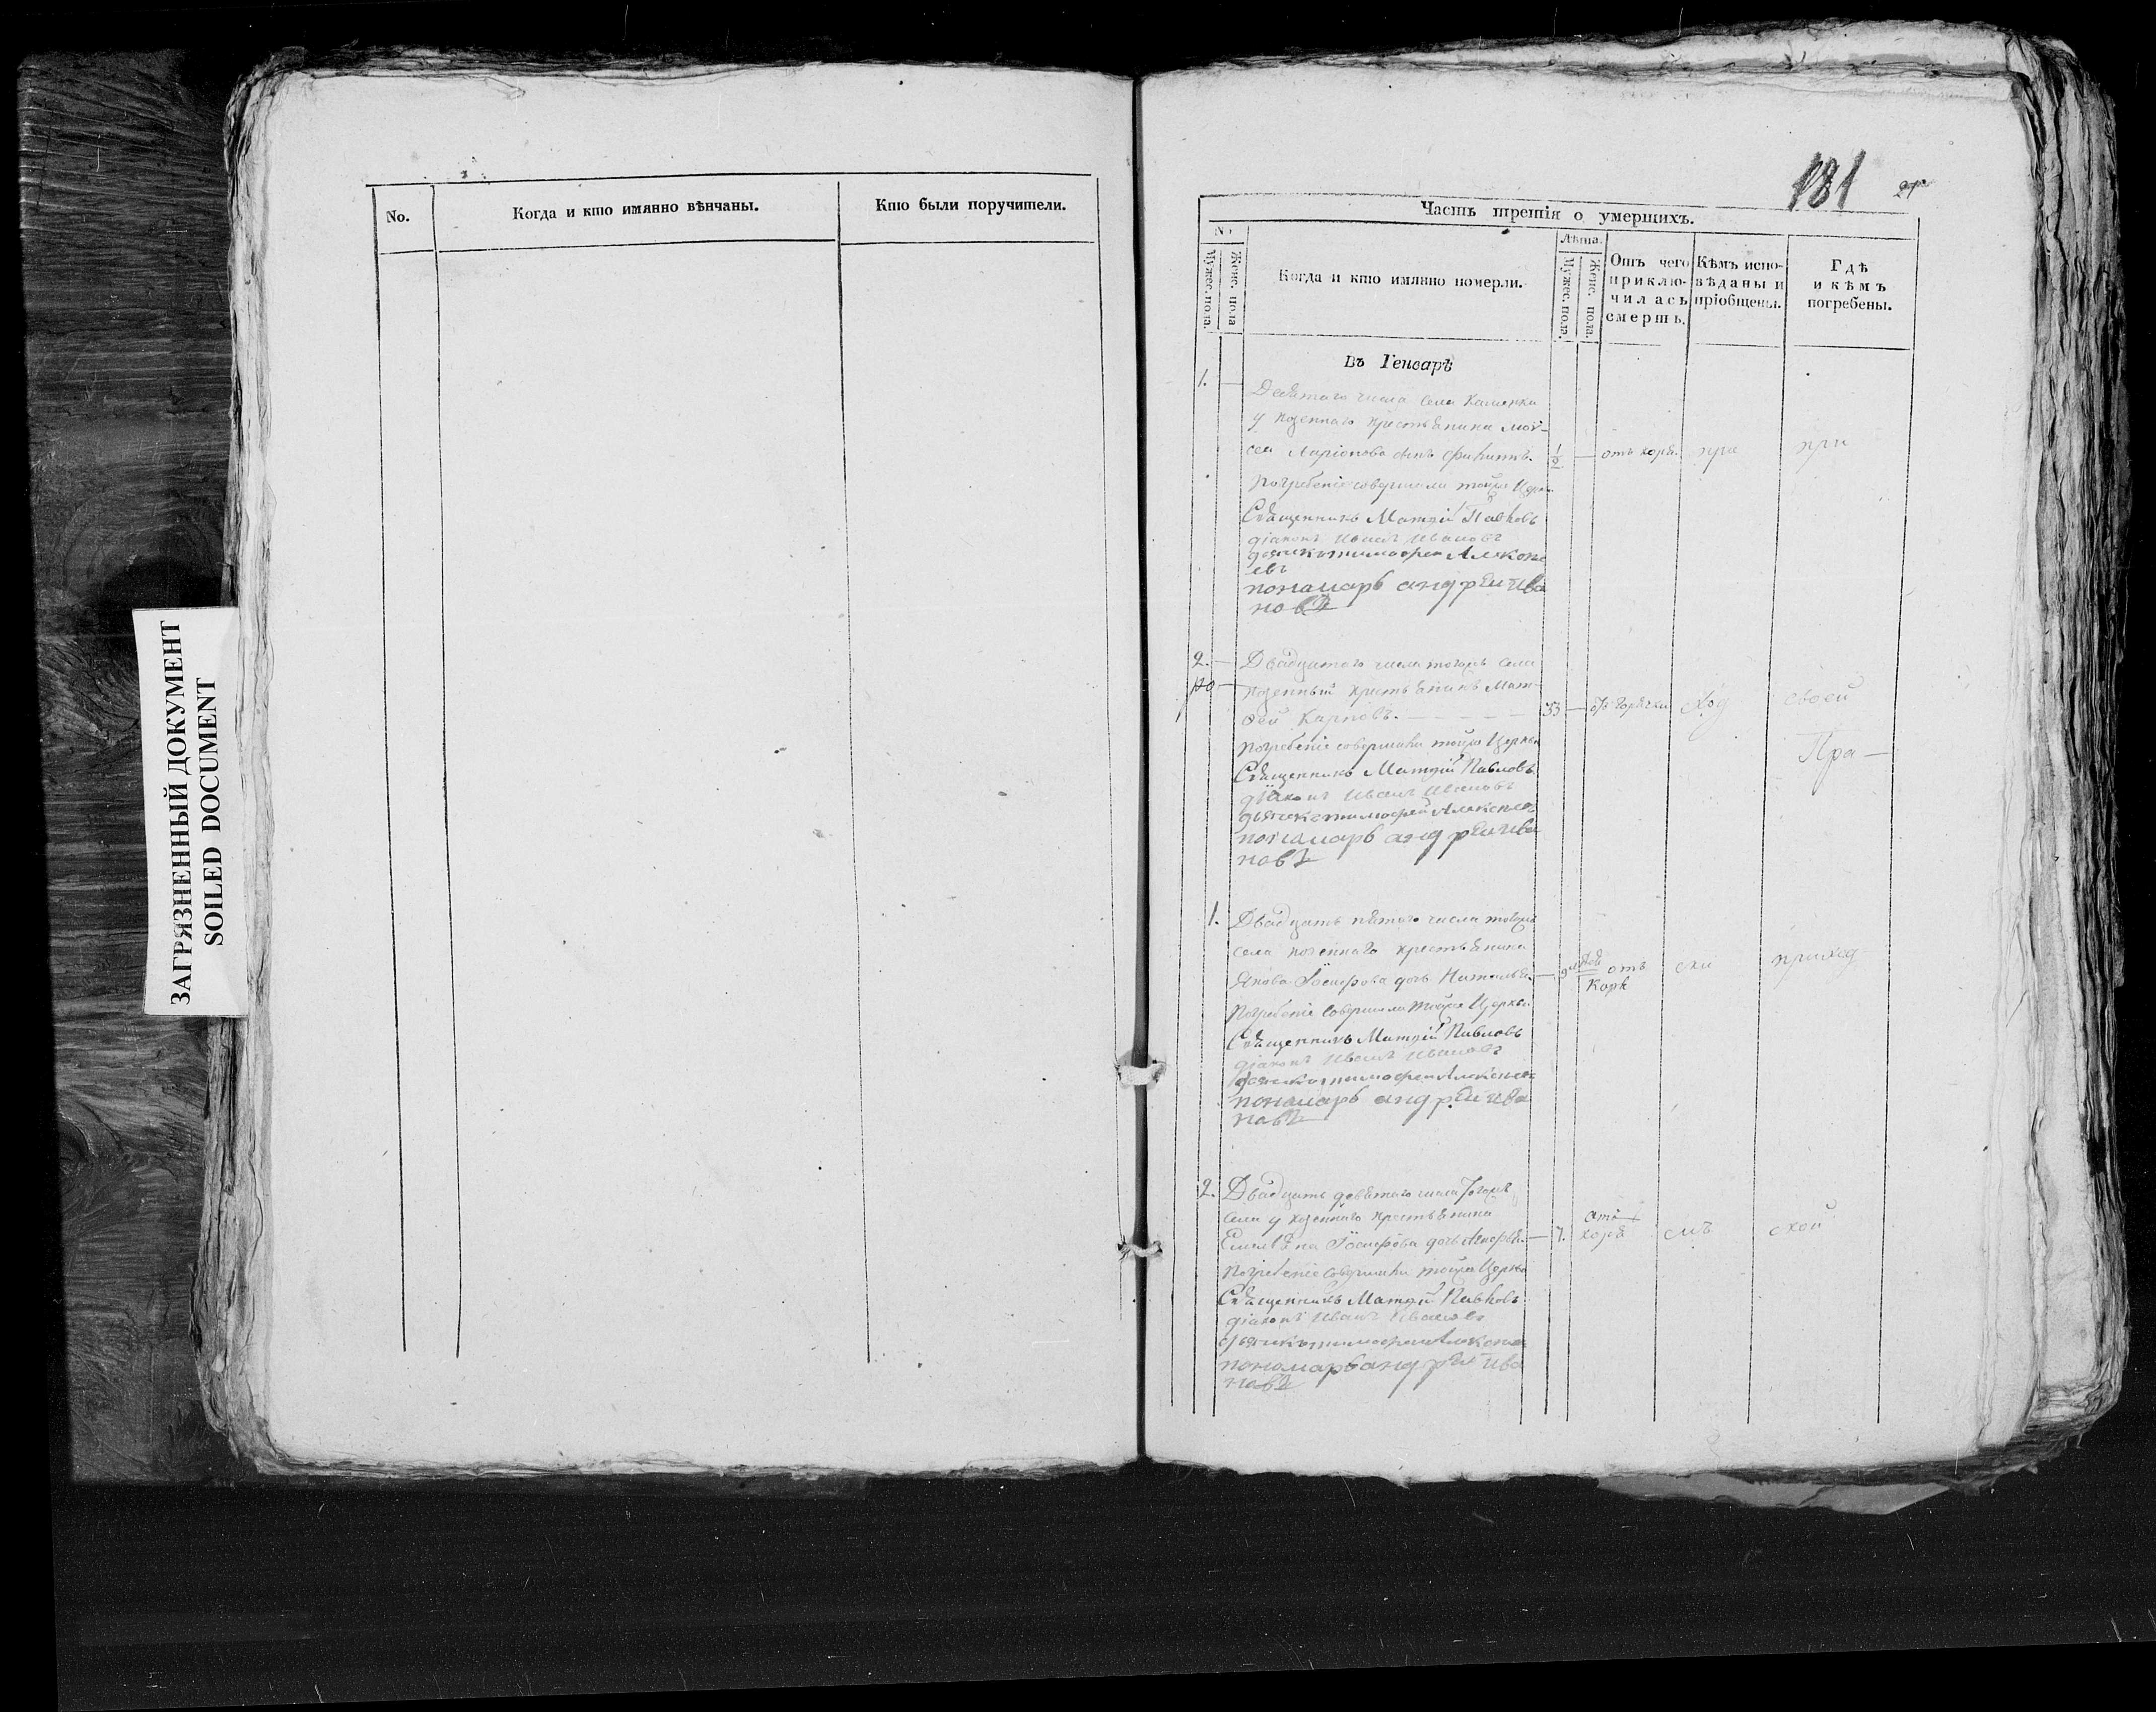 ЗАГРЯЗНЕННЫЙ ДОКУМЕНТ
SOILED DOCUMENT
No.
Когда и кто имянно вѣнчаны.
Кто были поручители.
181
Часть третія о умершихъ.
No
Мужес. пола.
Женс. пола
Когда и кто имянно померли.
Лѣта.
Мужес. пола.
Женс. пола.
Отъ чего
приклю-
чилась
смерть.
Кѣмъ испо-
вѣданы и
пріобщены.
Гдѣ
и кѣмъ
погребены.
Въ Генварѣ
1.
числа села
у козеннаго крестьянина Мой-
сея Ларіонова сынъ
1/2
отъ коръ.
при
Погребеніе совершали тойже Церкви
Священникъ Матѳій Павловъ
діаконъ Иванъ Ивановъ
дьячекъ тимофеи Алексе
евъ
пономарь андрѣи ива
новъ
2.
Двадцатого числа тогожъ села
козенный крестьянинъ Мат-
ѳей Карповъ.
33
отъ горячки
ход
своей
Погребеніе совершали тойже Церкви
Пра
Священникъ Матѳій Павловъ
діаконъ Иванъ Ивановъ
дьячекъ тимофей Алексеевъ
пономарь андрѣи ива
новъ
1.
Двадцать пятого числа тогожъ
села козеннаго крестьянина
Якова Іосифова дочь Наталья.
отъ
коръ
ски
приход
Погребеніе совершали тойже Церкви
Священникъ Матѳій Павловъ
діаконъ Иванъ Ивановъ
дьячекъ тимофеи Алексеевъ
пономарь андрѣи ива
новъ
2.
Двадцать девятаго числа тогожъ
села у козеннаго крестьянина
Іосифова дочь
7.
отъ
коръ
мъ
ской
Погребеніе совершали тойже Церкви
Священникъ Матѳій Павловъ
діаконъ Иванъ Ивановъ
дьячекъ тимофеи Алексеевъ
пономарь андрѣи ива
новъ